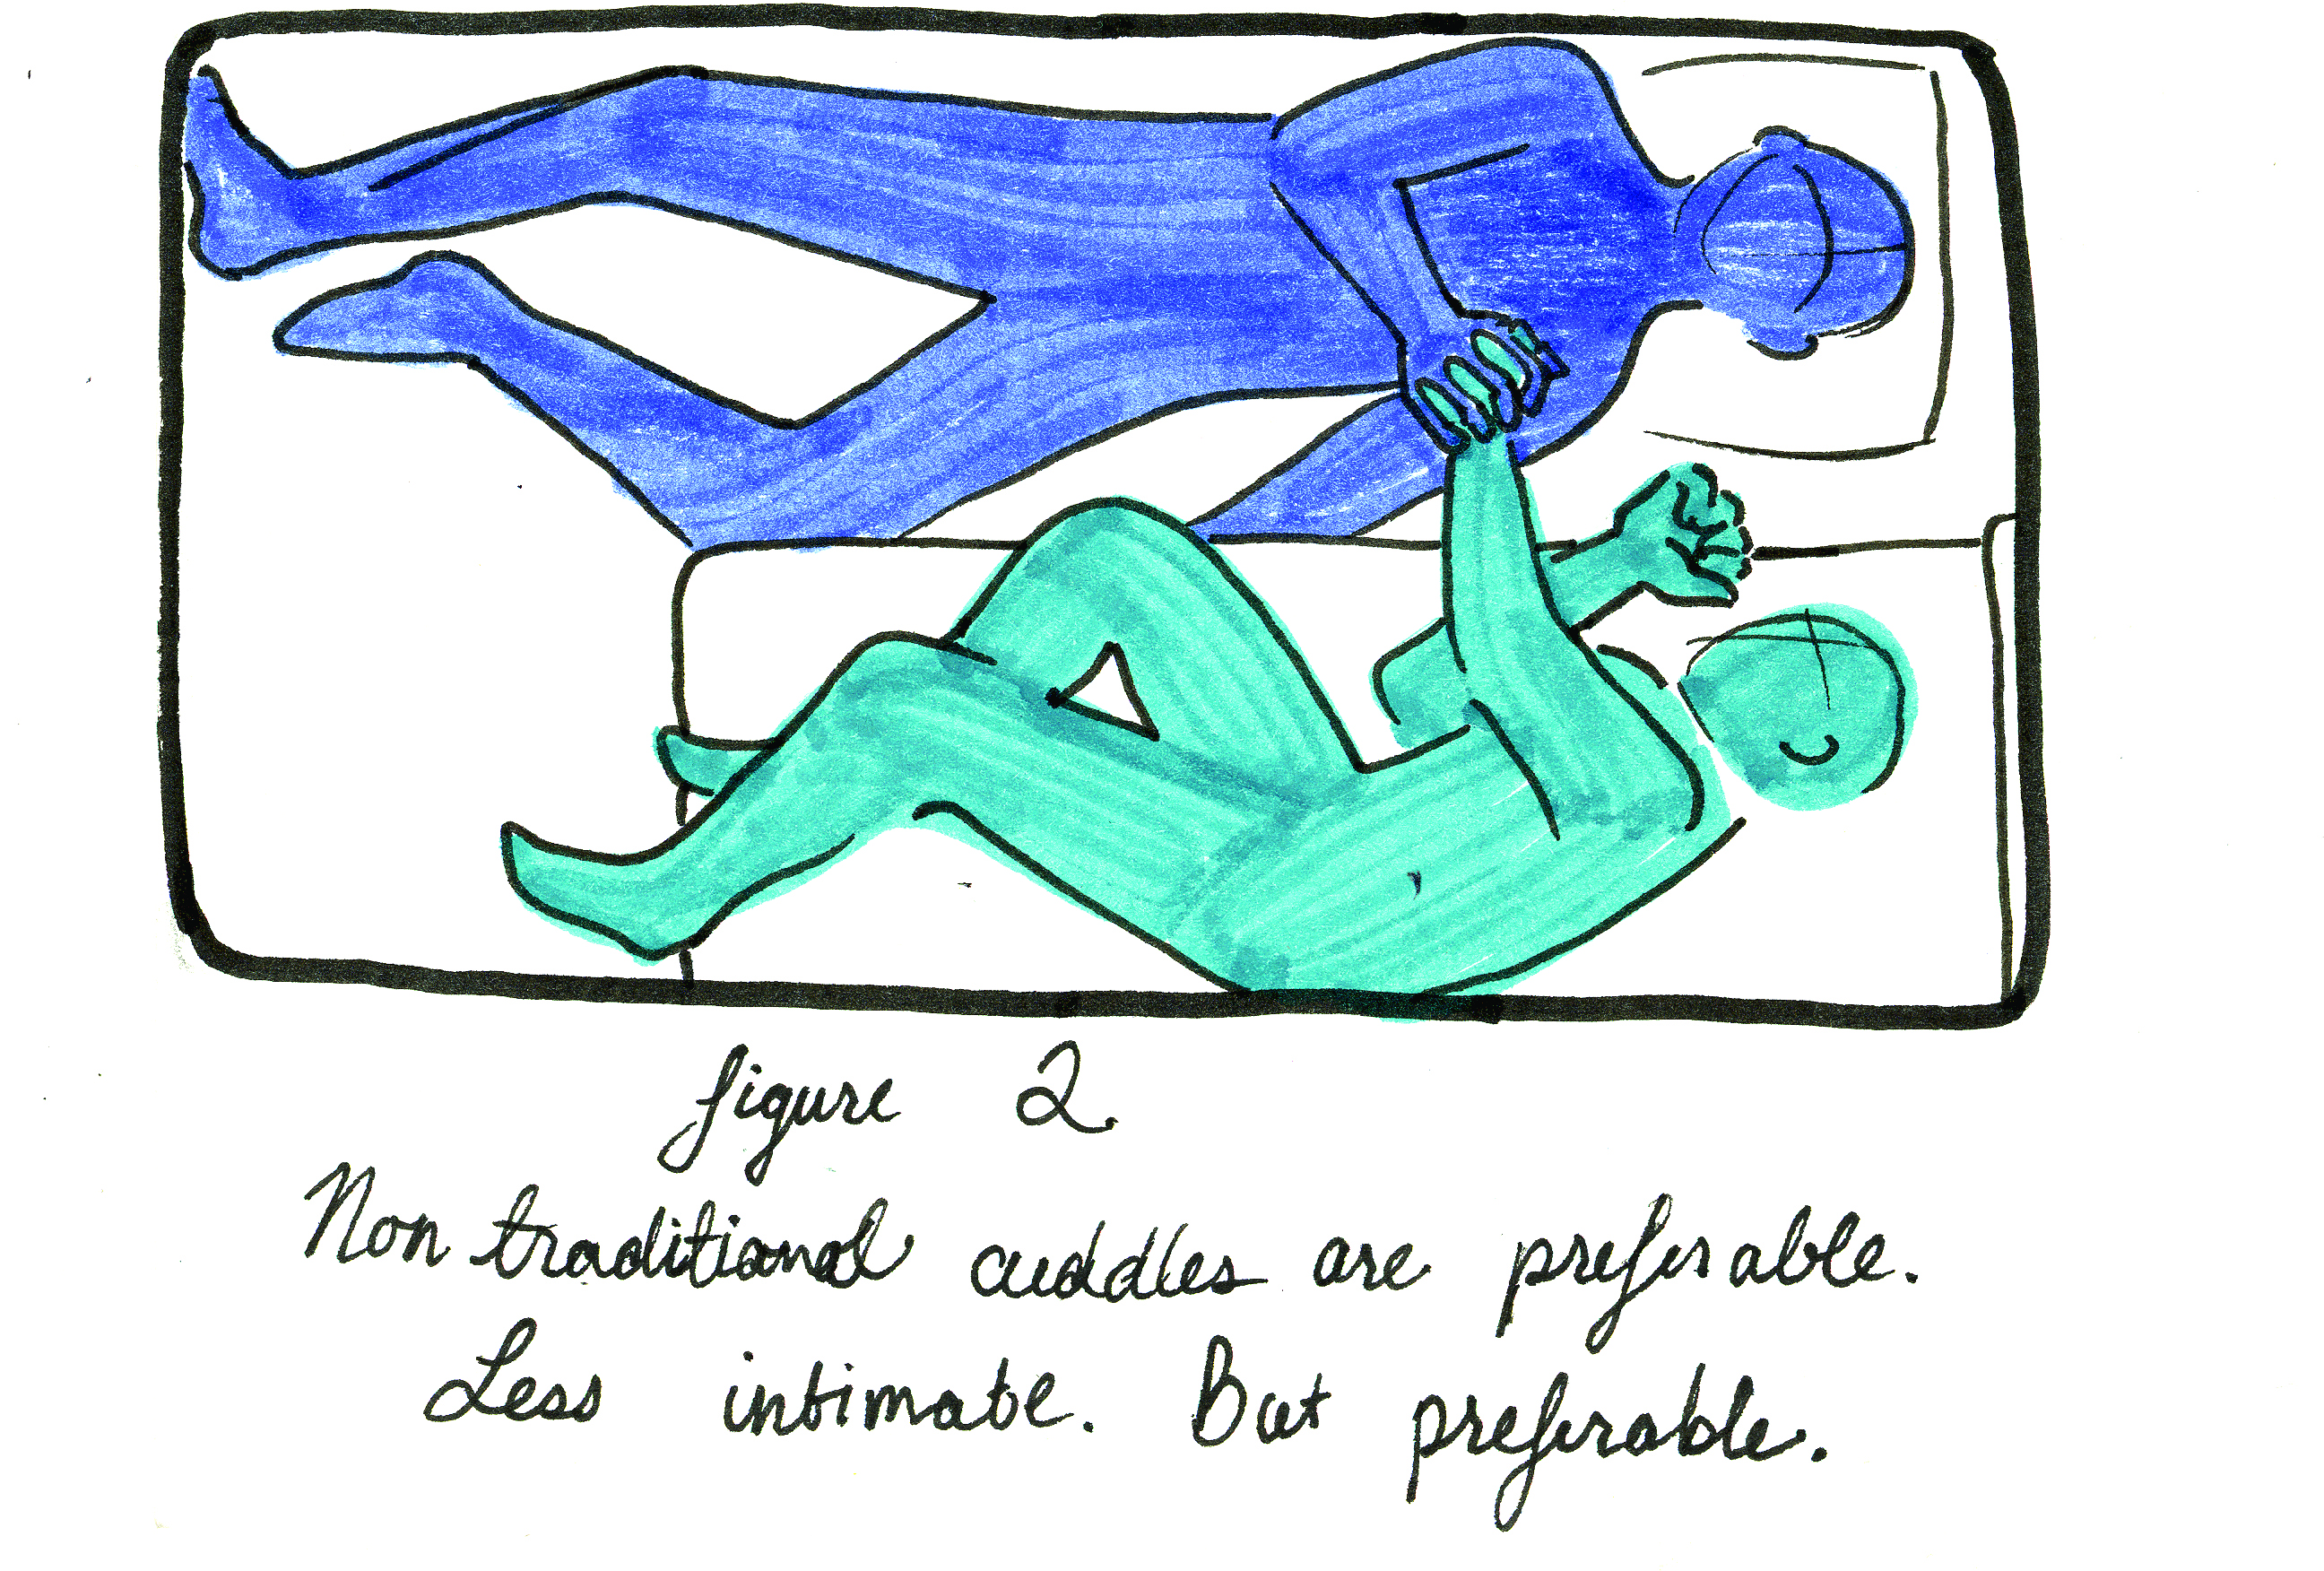 figure 2.
Non traditional cuddles are preferable.
Less intimate. But preferable.